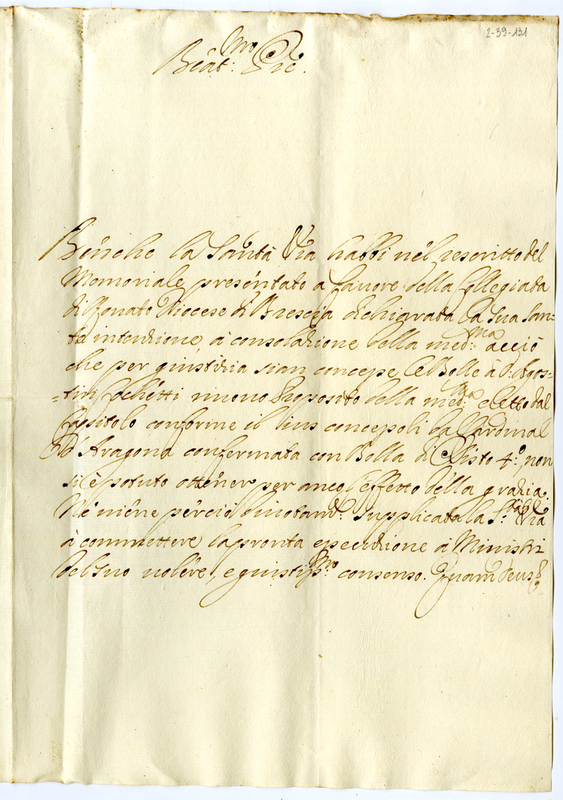 2-39-131
Beat.mo Pre.
Benche la Santà Vra habbi nel rescritto del
Memoriale presentato a favore della Collegiata
di Lonato Diocese di Brescia dichiarata la sua San-
ta intenzione à consolazione della med.ma acciò
che per giustizia sian concepe le Bolle à D. Agos-
=tin nuovo Preposito della med.ma eletto dal
Capitolo conforme il Ius concepoli da Cardinal
d'Aragona confermata con Bolla di Sisto 4.o non
si è potuto ottener per anco l'effetto della grazia.
Ne viene perciò Supplicata la S.tà Vra
à commettere la pronta esecuzione à Ministri
del suo volere, e giustiss.mo consenso. Quam Deus &